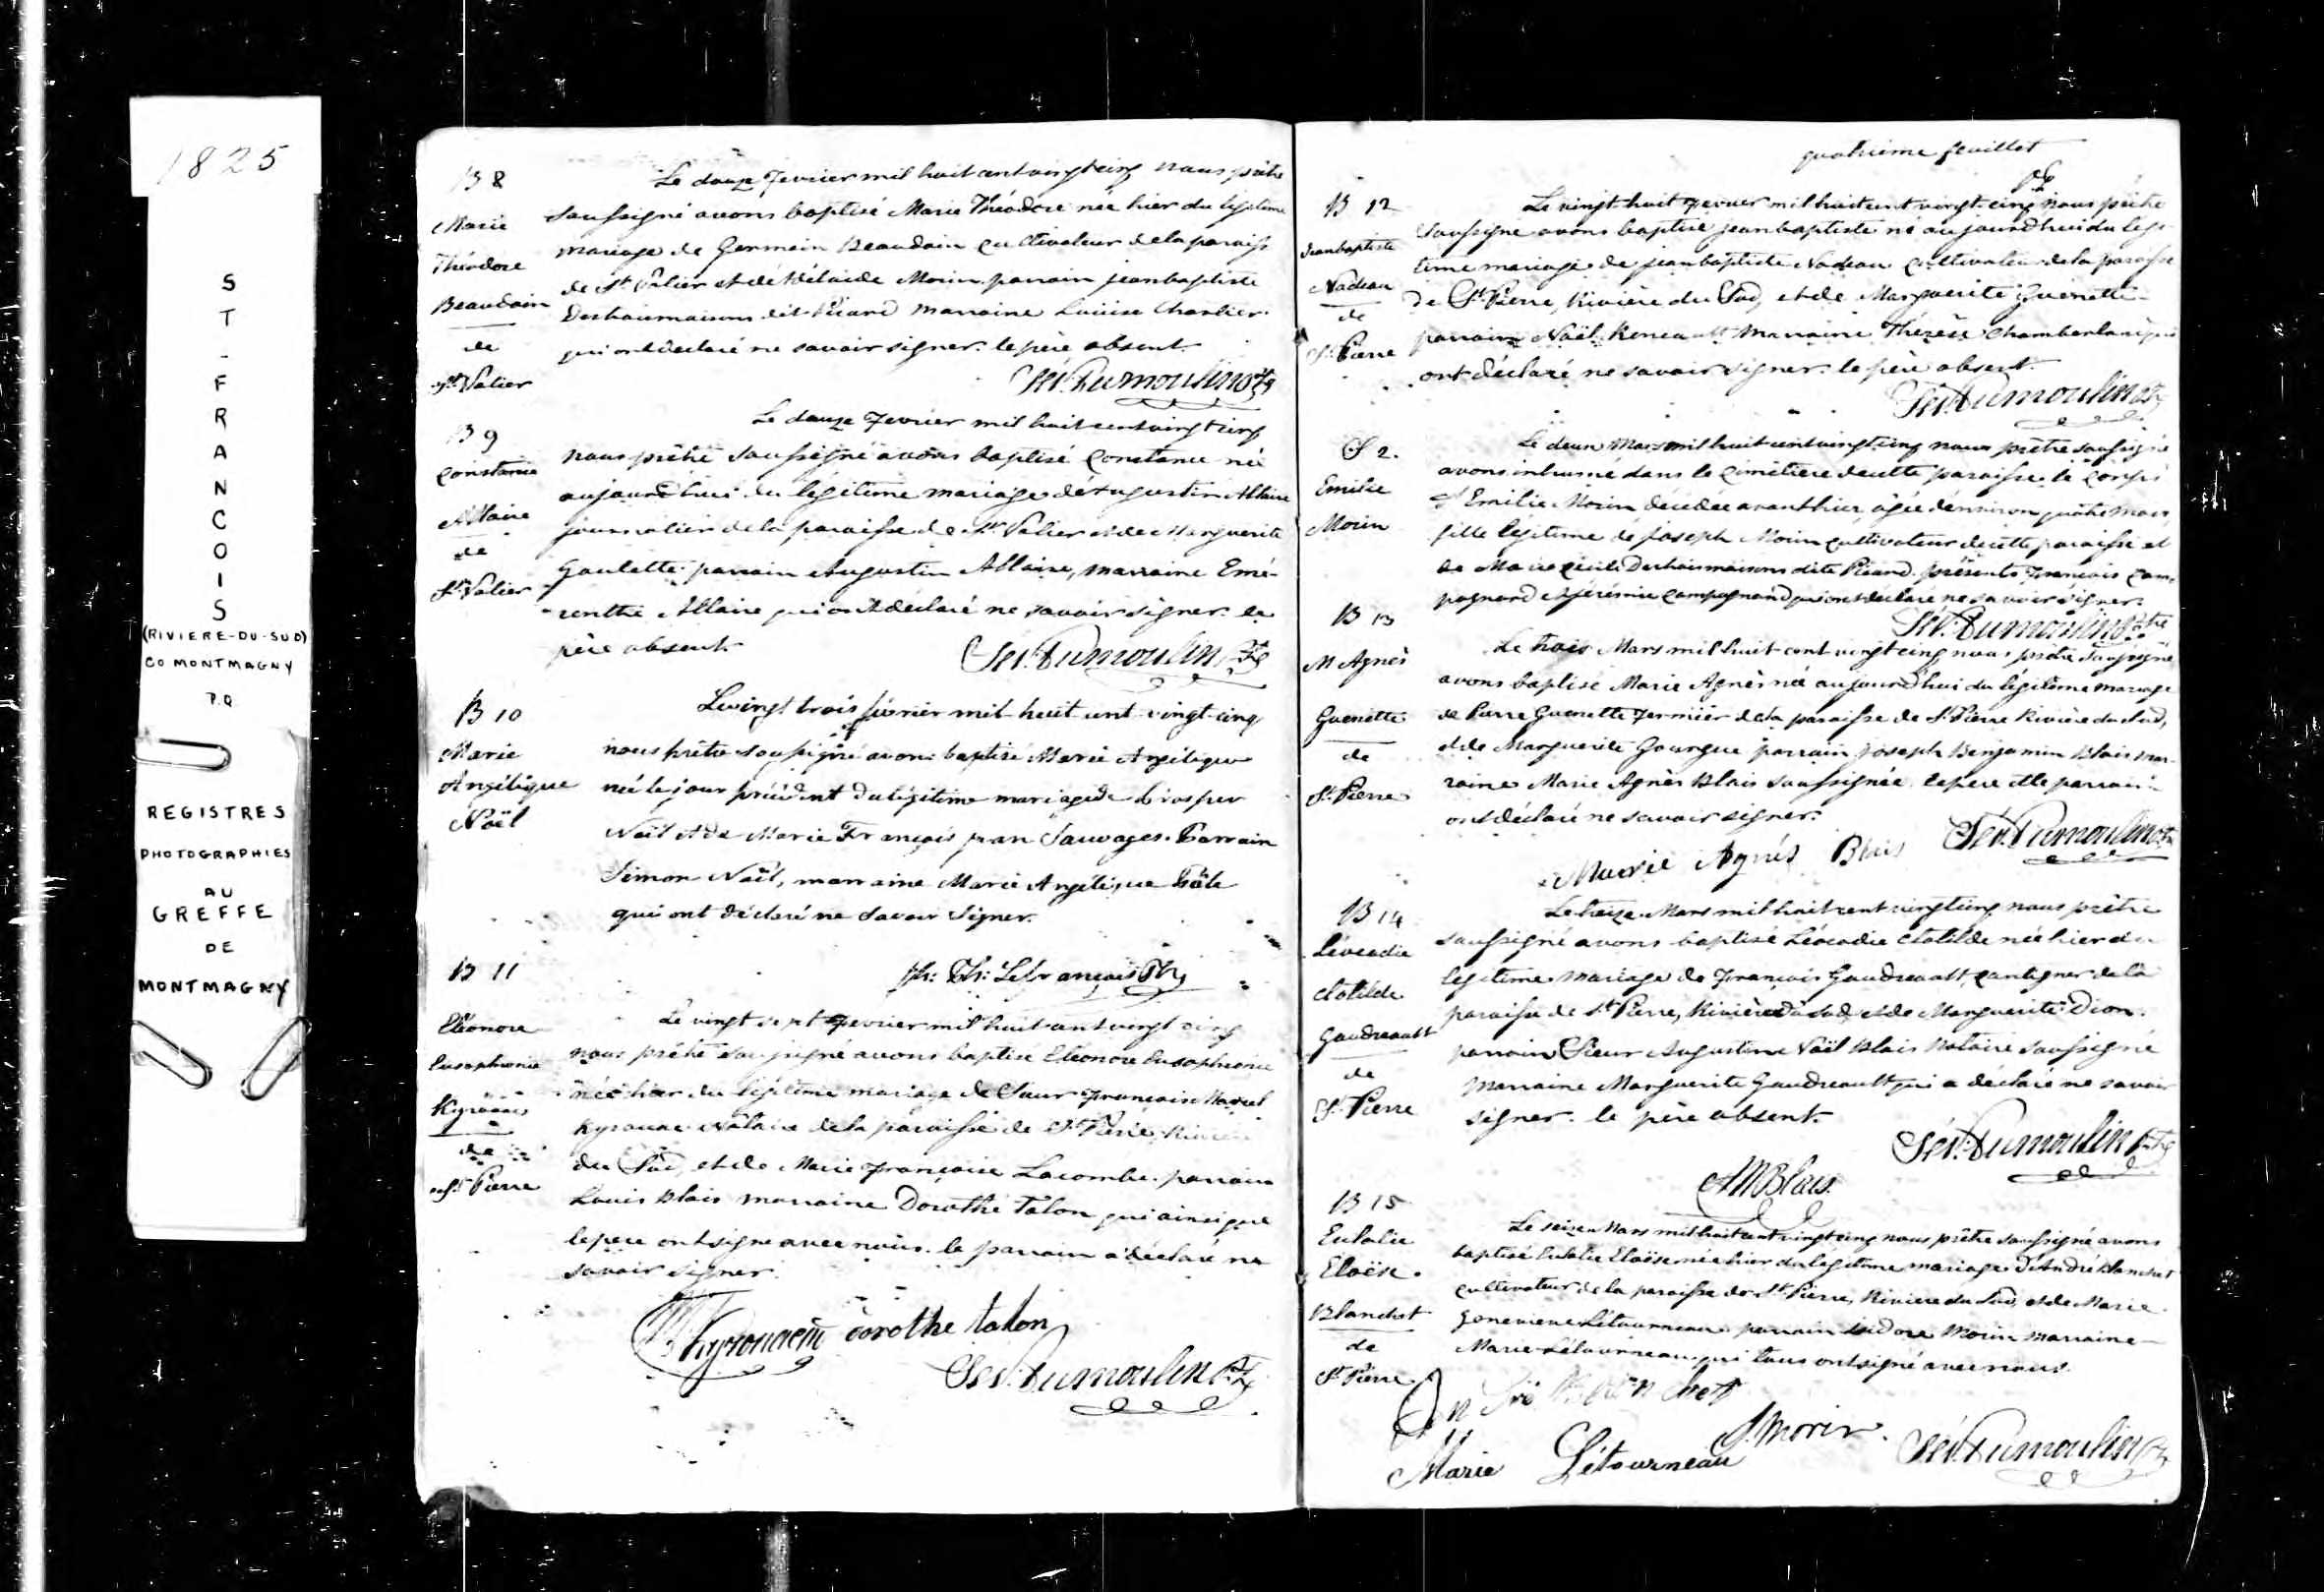 1825
S
T
-
F
R
A
N
C
O
I
S
(RIVIERE-DU-SUD)
CO MONTMAGNY
P.Q
REGISTRES
PHOTOGRAPHIES
AU
GREFFE
DE
MONTMAGNY
B 8
Marie
Théodore
Beaudoin
de
St Valier
Le douze fevrier mil huit cent vingt cinq nous prêtre
soussigné avons baptisé Marie Théodore née hier du legitime
mariage de Germain Beaudoin cultivateur de la paroisse
de St Valier et de Adélaide Morin. parrain jean baptiste
Deshaismaisons dit Picard marraine Louise Charlier
qui ont declaré ne savoir signer. le père absent.
Sév. Dumoulin Ptr
B 9
Constance
Allaire
de
St Valier
Le douze fevrier mil huit cent vingt cinq
nous prêtre soussigné avons baptisé Constance née
aujourd'hui du legitime mariage de Augustin Allaire
journalier de la paroisse de St Valier et de Marguerite
Goulette. parrain Augustin Allaire, marraine Emé-
renthe Allaire qui ont déclaré ne savoir signer. le
père absent.
Sév. Dumoulin Ptr
B 10
Marie
Angélique
Noël
Le vingt trois février mil huit cent vingt-cinq
nous prêtre soussigné avons baptisé Marie Angélique
née le jour précédent du légitime mariage de Prosper
Noël et de Marie François Sauvages. Parrain
Simon Noël, marraine Marie Angélique
qui ont déclaré ne savoir signer.
Ph: Th: Lefrançois Ptr
B 11
Eléonore
Eusophronie
Kyrouac
de
St Pierre
Le vingt sept fevrier mil huit cent vingt cinq
nous prêtre soussigné avons baptisé Eléonore Eusophronie
née hier du légitime mariage de Sieur François Marcel
Kyrouac Notaire de la paroisse de St Pierre, Rivière
du Sud, et de Marie Françoise Lacombe. parrain
Louis Blais marraine Dorothé Talon qui ainsi que
le pere ont signé avec nous. le parrain a déclaré ne
savoir signer.
dorothe talon
Sév. Dumoulin Ptr
quatrieme feuillet
B 12
Jean baptiste
Nadeau
de
St Pierre
Le vingt-huit fevrier mil huit cent vingt cinq nous prêtre
soussigné avons baptisé jean baptiste né aujourd'hui du legi-
time mariage de jean baptiste Nadeau cultivateur de la paroisse
de St Pierre, Rivière du Sud, et de Marguerite Guenette
parrain Noël Reneault marraine Thérèse Chamberlan qui
ont déclaré ne savoir signer. le père absent.
Sév. Dumoulin Ptr
S 2.
Emilie
Morin
Le deux Mars mil huit cent vingt cinq nous prêtre soussigné
avons inhumé dans le cimetiere de cette paroisse le corps
d'Emilie Morin décédée avant hier, agée d'environ quatre mois,
fille legitime de joseph Morin cultivateur de cette paroisse et
de Marie Cécile Deshaismaisons dite Picard. présents François Cam-
pagnard et Jérémie Campagnard qui ont declaré ne savoir signer.
Sév. Dumoulin Ptre
B 13
M Agnès
Guenette
de
St Pierre
Le trois Mars mil huit cent vingt cinq nous prêtre soussigné
avons baptisé Marie Agnès née aujourd'hui du légitime mariage
de Pierre Guenette fermier de la paroisse de St Pierre Rivière du Sud,
et de Marguerite Gourgue parrain joseph Benjamin Blais mar-
raine Marie Agnès Blais soussignée. le pere et le parrain
ont déclaré ne savoir signer.
Marie Agnés Blais Sév. Dumoulin Ptr
B 14
Léocadie
Clotilde
Gaudreault
de
St Pierre
Le treize Mars mil huit cent vingt cinq nous prêtre
soussigné avons baptisé Léocadie Clotilde née hier du
legitime mariage de François Gaudreault, de la
paroisse de St Pierre, Rivière du Sud et de Marguerite Dion.
parrain Sieur Augustine Noël Blais Notaire soussigné
marraine Marguerite Gaudreault qui a déclaré ne savoir
signer. le père absent.
Sév. Dumoulin Ptr
ANBlais
B 15
Eulalie
Eloëse
Blanchet
de
St Pierre
Le seize Mars mil huit cent vingt cinq nous prêtre soussigné avons
baptisé Eulalie Eloëse née hier du légitime mariage d'André Blanchet
cultivateur de la paroisse de St Pierre, Riviere du Sud, et de Marie
Genevieve Létourneau. parrain Isidore Morin marraine
Marie Létourneau qui tous ont signé avec nous.
I. Morin
Marie Létourneau Sév. Dumoulin Ptr